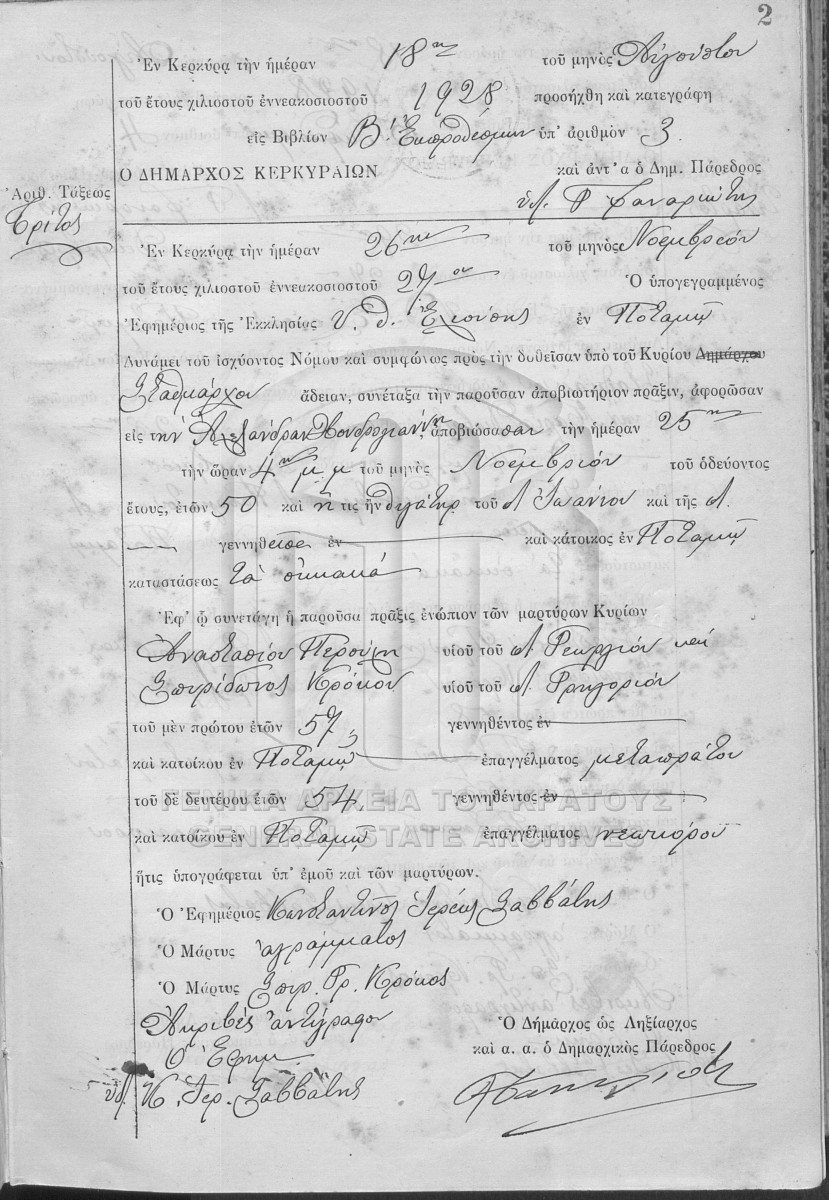 2
Ἐν Κερκύρᾳ τὴν ἡμέραν 18ην τοῦ μηνὸς Αὐγούστου
τοῦ ἔτους χιλιοστοῦ ἐννεακοσιοστοῦ 1928 προσήχθη καὶ κατεγράφη
εἰς Βιβλίον Β. Ἐκπροθέσμων ὑπ' ἀριθμὸν 3
Ο ΔΗΜΑΡΧΟΣ ΚΕΡΚΥΡΑΙΩΝ καὶ ἀντ'α ὁ Δημ. Πάρεδρος
Ἀριθ. Τάξεως
Τρίτος
Φαναριώτης
Ἐν Κερκύρᾳ τὴν ἡμέραν 26ην τοῦ μηνὸς Νοεμβρίου
τοῦ ἔτους χιλιοστοῦ ἐννεακοσιοστοῦ 27ου Ὁ ὑπογεγραμμένος
Ἐφημέριος τῆς Ἐκκλησίας Υ. Θ. Ἐλεούσης ἐν Ποταμῷ
Δυνάμει τοῦ ἰσχύοντος Νόμου καὶ συμφώνως πρὸς τὴν δοθεῖσαν ὑπὸ τοῦ Κυρίου Δημάρχου
Σταθμάρχου ἄδειαν, συνέταξα τὴν παροῦσαν ἀποβιωτήριον πρᾶξιν, ἀφορῶσαν
εἰς τὴν Ἀλεξάνδραν Χονδρογιάννη, ἀποβιώσασαν τὴν ἡμέραν 25ην
τὴν ὥραν 4ην μ.μ τοῦ μηνὸς Νοεμβρίου τοῦ ὁδεύοντος
ἔτους, ἐτῶν 50 καὶ ἥτις ἦν θυγάτηρ τοῦ Λ Ἰωάννου καὶ τῆς Λ.
γεννηθεῖσα ἐν καὶ κάτοικος ἐν Ποταμῷ
καταστάσεως τὰ οἰκιακά
Ἐφ' ᾧ συνετάγη ἡ παροῦσα πρᾶξις ἐνώπιον τῶν μαρτύρων Κυρίων
Ἀναστασίου Περούλη υἱοῦ τοῦ Λ Γεωργίου καὶ
Σπυρίδωνος Κρόκου υἱοῦ τοῦ Λ. Γρηγορίου
τοῦ μὲν πρώτου ἐτῶν 57 γεννηθέντος ἐν
καὶ κατοίκου ἐν Ποταμῷ ἐπαγγέλματος μεταπράτου
τοῦ δὲ δευτέρου ἐτῶν 54 γεννηθέντος ἐν
καὶ κατοίκου ἐν Ποταμῷ ἐπαγγέλματος νεωκόρου
ΓΕΝΙΚΑ ΑΡΧΕΙΑ ΤΟΥ ΚΡΑΤΟΥΣ
GENERAL STATE ARCHIVES
ἥτις ὑπογράφεται ὑπ' ἐμοῦ καὶ τῶν μαρτύρων.
Ὁ Ἐφημέριος Κωνσταντῖνος Ἱερεὺς Σαββάνης
Ὁ Μάρτυς ἀγράμματος
Ὁ Μάρτυς Σπυρ. Γρ. Κρόκος
Ἀκριβὲς ἀντίγραφον
Ὁ Ἐφημ.
Κ. Ἱερ. Σαββάνης
Ὁ Δήμαρχος ὡς Ληξίαρχος
καὶ α. α. ὁ Δημαρχικὸς Πάρεδρος